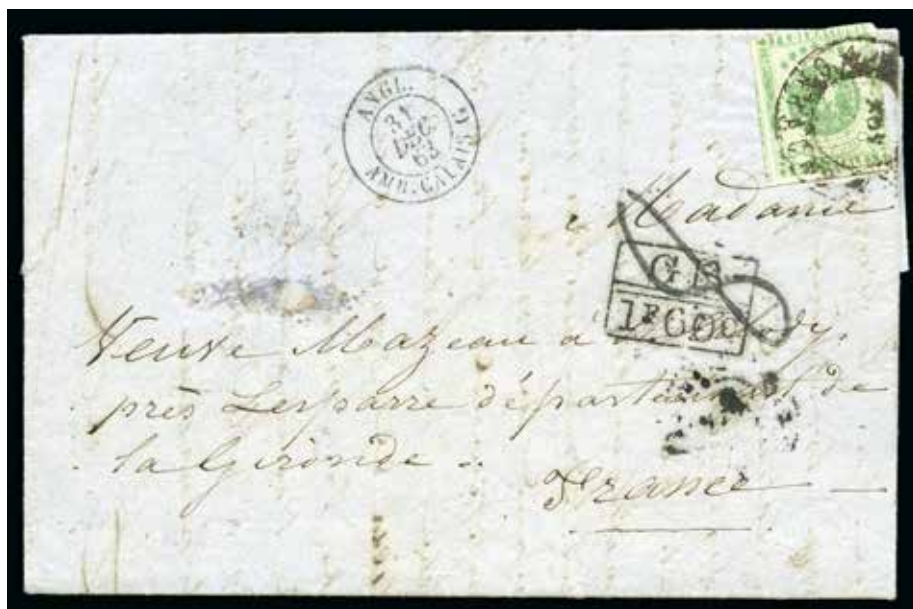 ANGL.
31
DEC.
62
AMB. CALAIS G
Madame
GB
1F60C
Veuve Mazeau à
près Lesparre département de
la Gironde
France